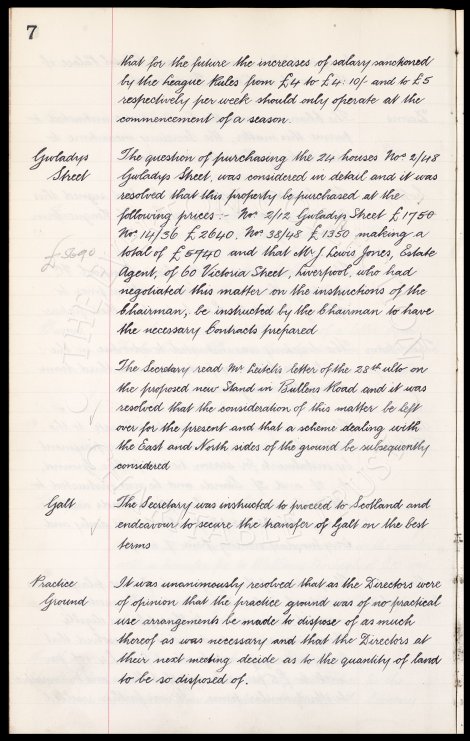 7
that for the future the increases of salary sanctioned
by the League Rules from £4 to £4:10/- and to £5
respectively per week should only operate at the
commencement of a season.
Gwladys
Street
The question of purchasing the 24 houses Nos 2/48
Gwladys Street, was considered in detail and it was
resolved that this property be purchased at the
following prices:- Nos 2/12 Gwladys Street £1750
Nos 14/36 £2640. Nos 38/48 £1350 making a
£5690
total of £5740 and that Mr J. Lewis Jones, Estate
Agent, of 60 Victoria Street, Liverpool, who had
negotiated this matter on the instructions of the
Chairman, be instructed by the Chairman to have
the necessary Contracts prepared
The Secretary read Mr Leitch's letter of the 28th ulto on
the proposed new Stand in Bullens Road and it was
resolved that the consideration of this matter be left
over for the present and that a scheme dealing with
the East and North sides of the ground be subsequently
considered
Galt
The Secretary was instructed to proceed to Scotland and
endeavour to secure the transfer of Galt on the best
terms
Practice
Ground
It was unanimously resolved that as the Directors were
of opinion that the practice ground was of no practical
use arrangements be made to dispose of as much
thereof as was necessary and that the Directors at
their next meeting decide as to the quantity of land
to be so disposed of.